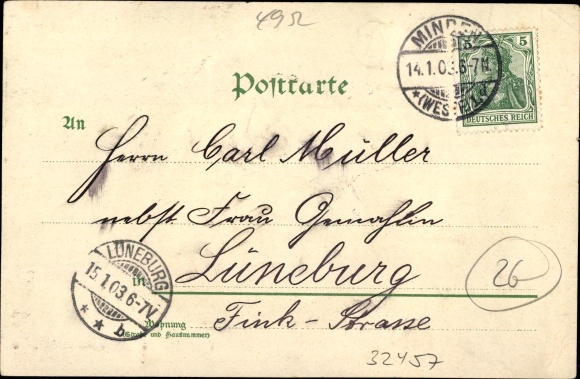 49
MINDEN
14.1.03.6-7N
*(WESTF.)
5
DEUTSCHES REICH
Postkarte
An
Herrn Carl Müller
nebst Frau Gemahlin
in Lüneburg
Wohnung Fink-Strasse
(Straße und Hausnummer)
LÜNEBURG
15.1.03.6-7V
* * b
26
32457